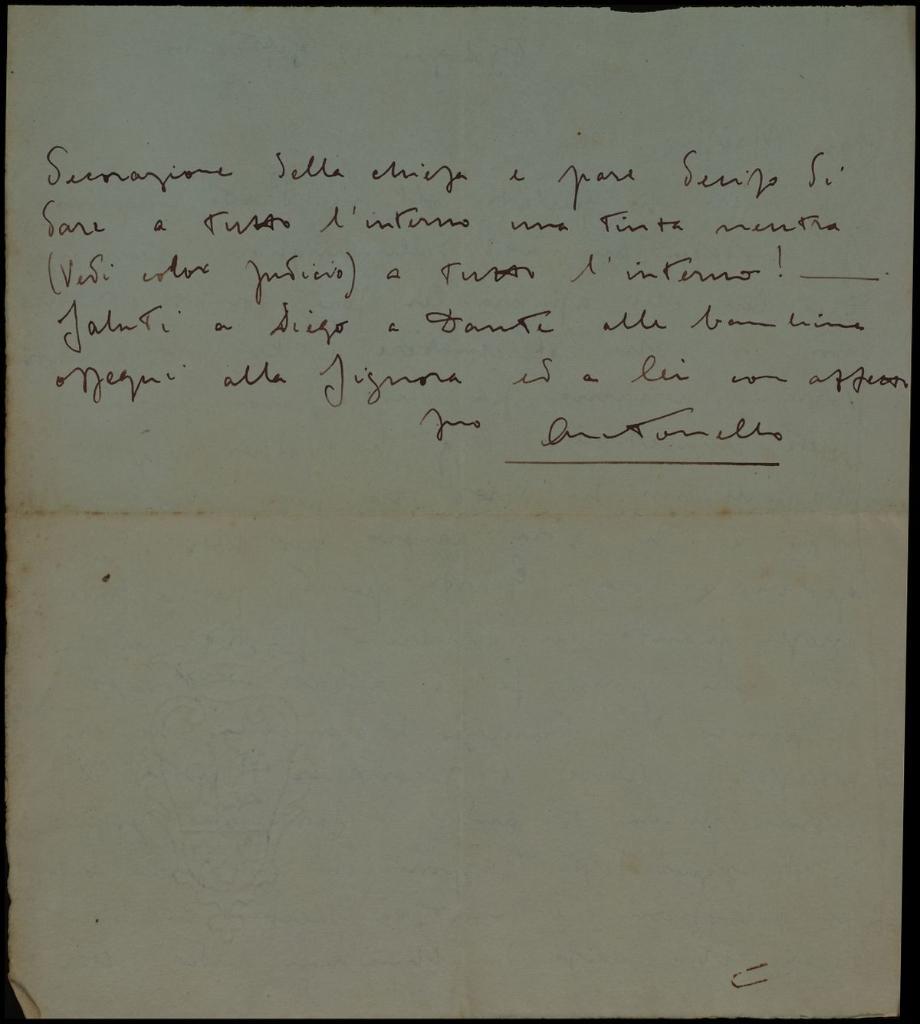 decorazione della chiesa e pare deciso di
dare a tutto l'interno una tinta neutra
(vedi color sudicio) a tutto l'interno! —
Saluti a Diego a Dante alle bambine
ossequi alla Signora ed a lei con affetto
suo Antonello